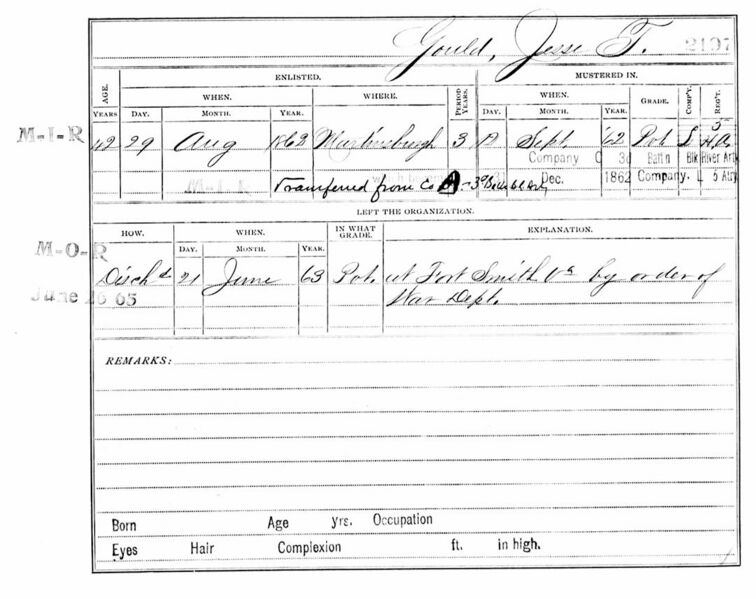 Gould, Jesse T. 2197
ENLISTED. MUSTERED IN.
AGE. WHEN. WHERE. PERIOD YEARS. WHEN. GRADE. COMP'Y. REG'T.
YEARS DAY. MONTH. YEAR. DAY. MONTH. YEAR.
M-I-R 42 29 Aug 1862 Martinsburgh 3 Sept '62 Pvt L 5 H.A.
Company C 3d Batt'n Blk River Arty
M-I-R Transferred from Co A - 3d Dec. 1862 Company. L 5 Arty
LEFT THE ORGANIZATION.
HOW. WHEN. IN WHAT GRADE. EXPLANATION.
M-O-R DAY. MONTH. YEAR.
Disch'd 21 June 63 Pvt. at Fort Smith Va by order of
June 26 65 War Dept.
REMARKS:
Born Age yrs. Occupation
Eyes Hair Complexion ft. in high.